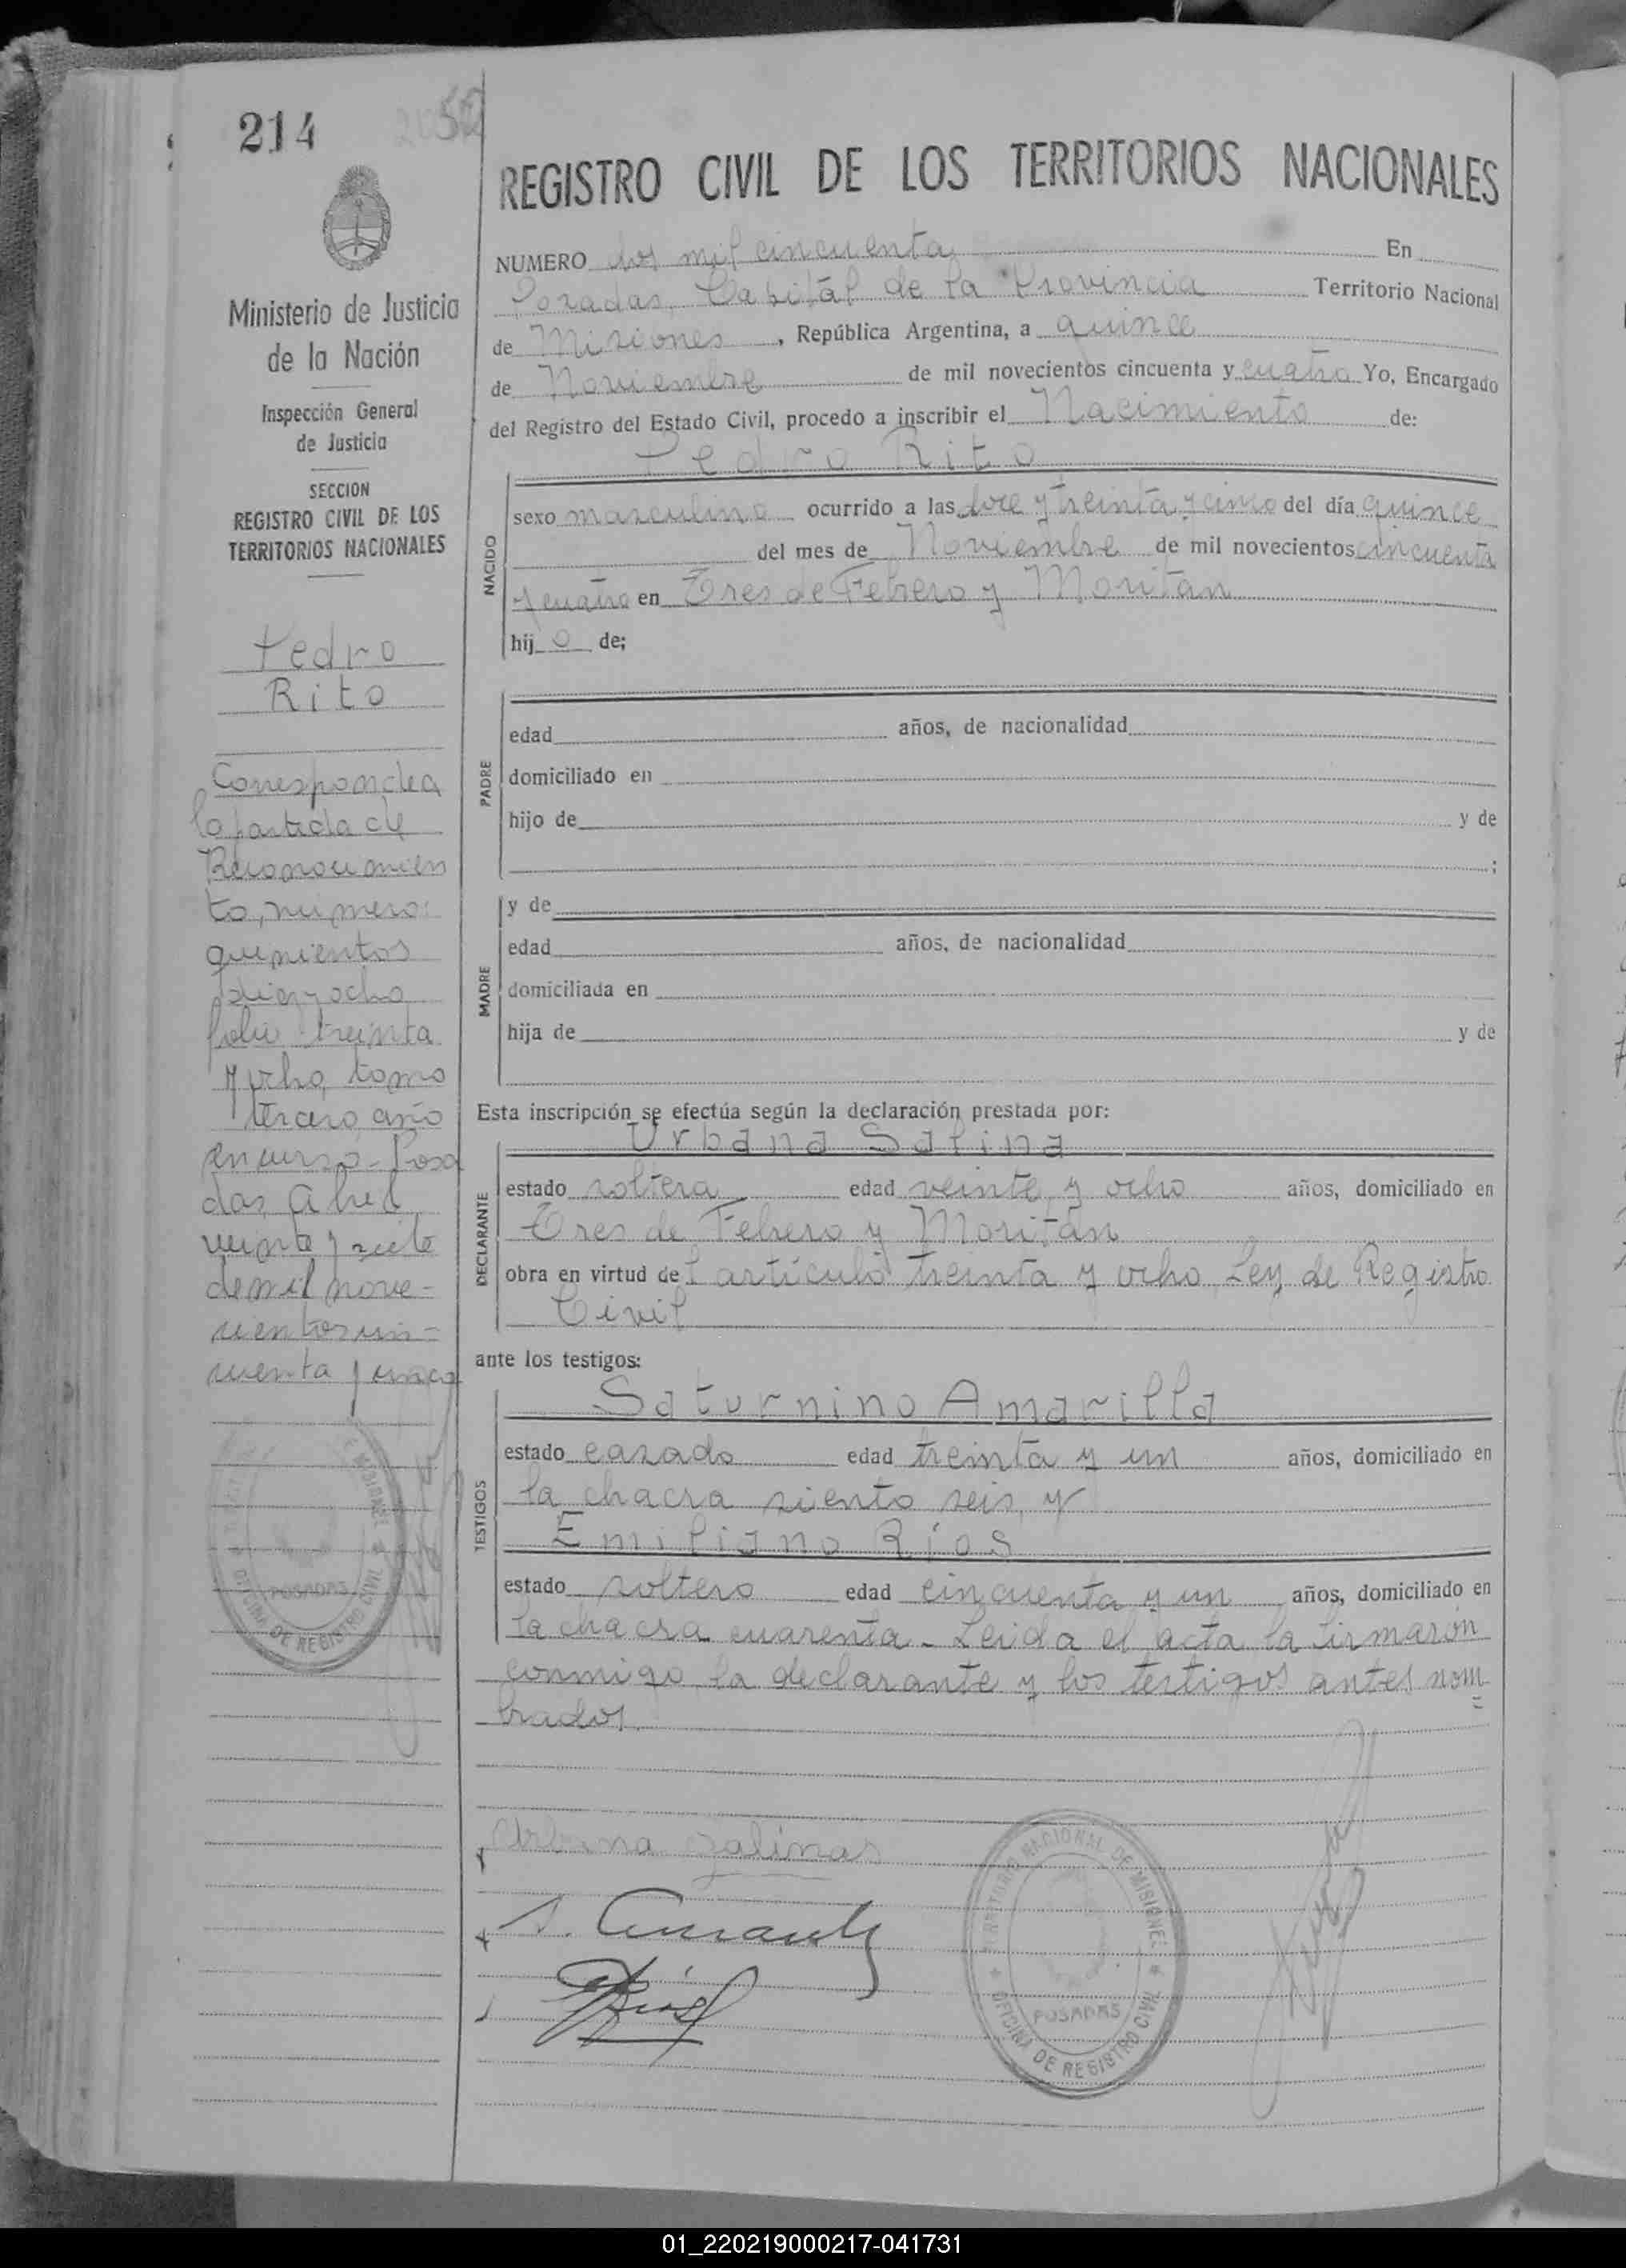 214
2050
REGISTRO CIVIL DE LOS TERRITORIOS NACIONALES
Ministerio de Justicia
de la Nación
Inspección General
de Justicia
SECCION
REGISTRO CIVIL DE LOS
TERRITORIOS NACIONALES
Pedro
Rito
Corresponde a
la partida de
Reconocimien
to, número:
quinientos
diez y ocho
folio treinta
y ocho, tomo
tercero, año
en curso - Posa
das, Abril
veinte y siete
de mil nove-
cientos cin-
cuenta y cinco
NUMERO dos mil cincuenta En
Posadas, Capital de la Provincia Territorio Nacional
de Misiones, República Argentina, a quince
de Noviembre de mil novecientos cincuenta y cuatro Yo, Encargado
del Registro del Estado Civil, procedo a inscribir el Nacimiento de:
Pedro Rito
NACIDO
sexo masculino ocurrido a las doce y treinta y cinco del día quince
del mes de Noviembre de mil novecientos cincuenta
y cuatro en Tres de Febrero y Moritán
hij o de;
PADRE
edad años, de nacionalidad
domiciliado en
hijo de y de
;
MADRE
y de
edad años, de nacionalidad
domiciliada en
hija de y de
Esta inscripción se efectúa según la declaración prestada por:
Urbana Salina
DECLARANTE
estado soltera edad veinte y ocho años, domiciliado en
Tres de Febrero y Moritán
obra en virtud del artículo treinta y ocho Ley de Registro
Civil
ante los testigos:
Saturnino Amarilla
TESTIGOS
estado casado edad treinta y un años, domiciliado en
la chacra siento seis, y
Emiliano Ríos
estado soltero edad cincuenta y un años, domiciliado en
la chacra cuarenta - Leída el acta la firmarón
conmigo la declarante y los testigos antes nom
brados.
Urbana Salinas
TERRITORIO NACIONAL DE MISIONES
POSADAS
OFICINA DE REGISTRO CIVIL
POSADAS
OFICINA DE REGISTRO CIVIL
01_220219000217-041731